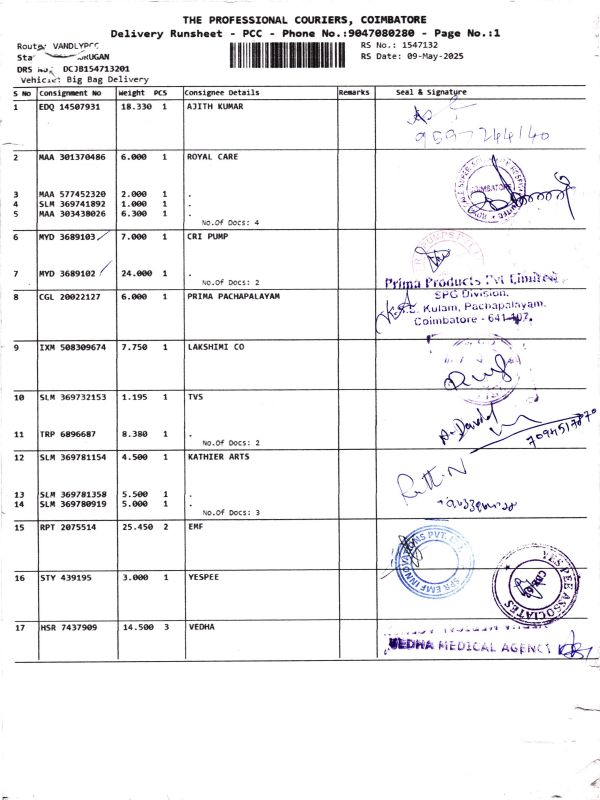 THE PROFESSIONAL COURIERS, COIMBATORE
Delivery Runsheet - PCC - Phone No.:9047080280 - Page No.:1
Route: VANDLYPCC
RS No.: 1547132
RUGAN
RS Date: 09-May-2025
DRS No. DCJB154713201
Vehicle: Big Bag Delivery
S No Consignment No Weight PCS Consignee Details Remarks Seal & Signature
1 EDQ 14507931 18.330 1 AJITH KUMAR
9597244140
2 MAA 301370486 6.000 1 ROYAL CARE
COIMBATORE
3 MAA 577452320 2.000 1 .
4 SLM 369741892 1.000 1 .
5 MAA 303438026 6.300 1 .
No.Of Docs: 4
6 MYD 3689103 7.000 1 CRI PUMP
7 MYD 3689102 24.000 1 .
No.Of Docs: 2
Prima Products Pvt Limited
8 CGL 20022127 6.000 1 PRIMA PACHAPALAYAM
SPG Division,
Kulam, Pachapalayam,
Coimbatore - 641 107.
9 IXM 508309674 7.750 1 LAKSHIMI CO
10 SLM 369732153 1.195 1 TVS
11 TRP 6896687 8.380 1 .
No.Of Docs: 2
A. David
7094517870
12 SLM 369781154 4.500 1 KATHIER ARTS
13 SLM 369781358 5.500 1 .
14 SLM 369780919 5.000 1 .
No.Of Docs: 3
15 RPT 2075514 25.450 2 EMF
SPR EMF INNOVATIONS PVT. LTD.
16 STY 439195 3.000 1 YESPEE
YES PEE ASSOCIATES
17 HSR 7437909 14.500 3 VEDHA
VEDHA MEDICAL AGENCY